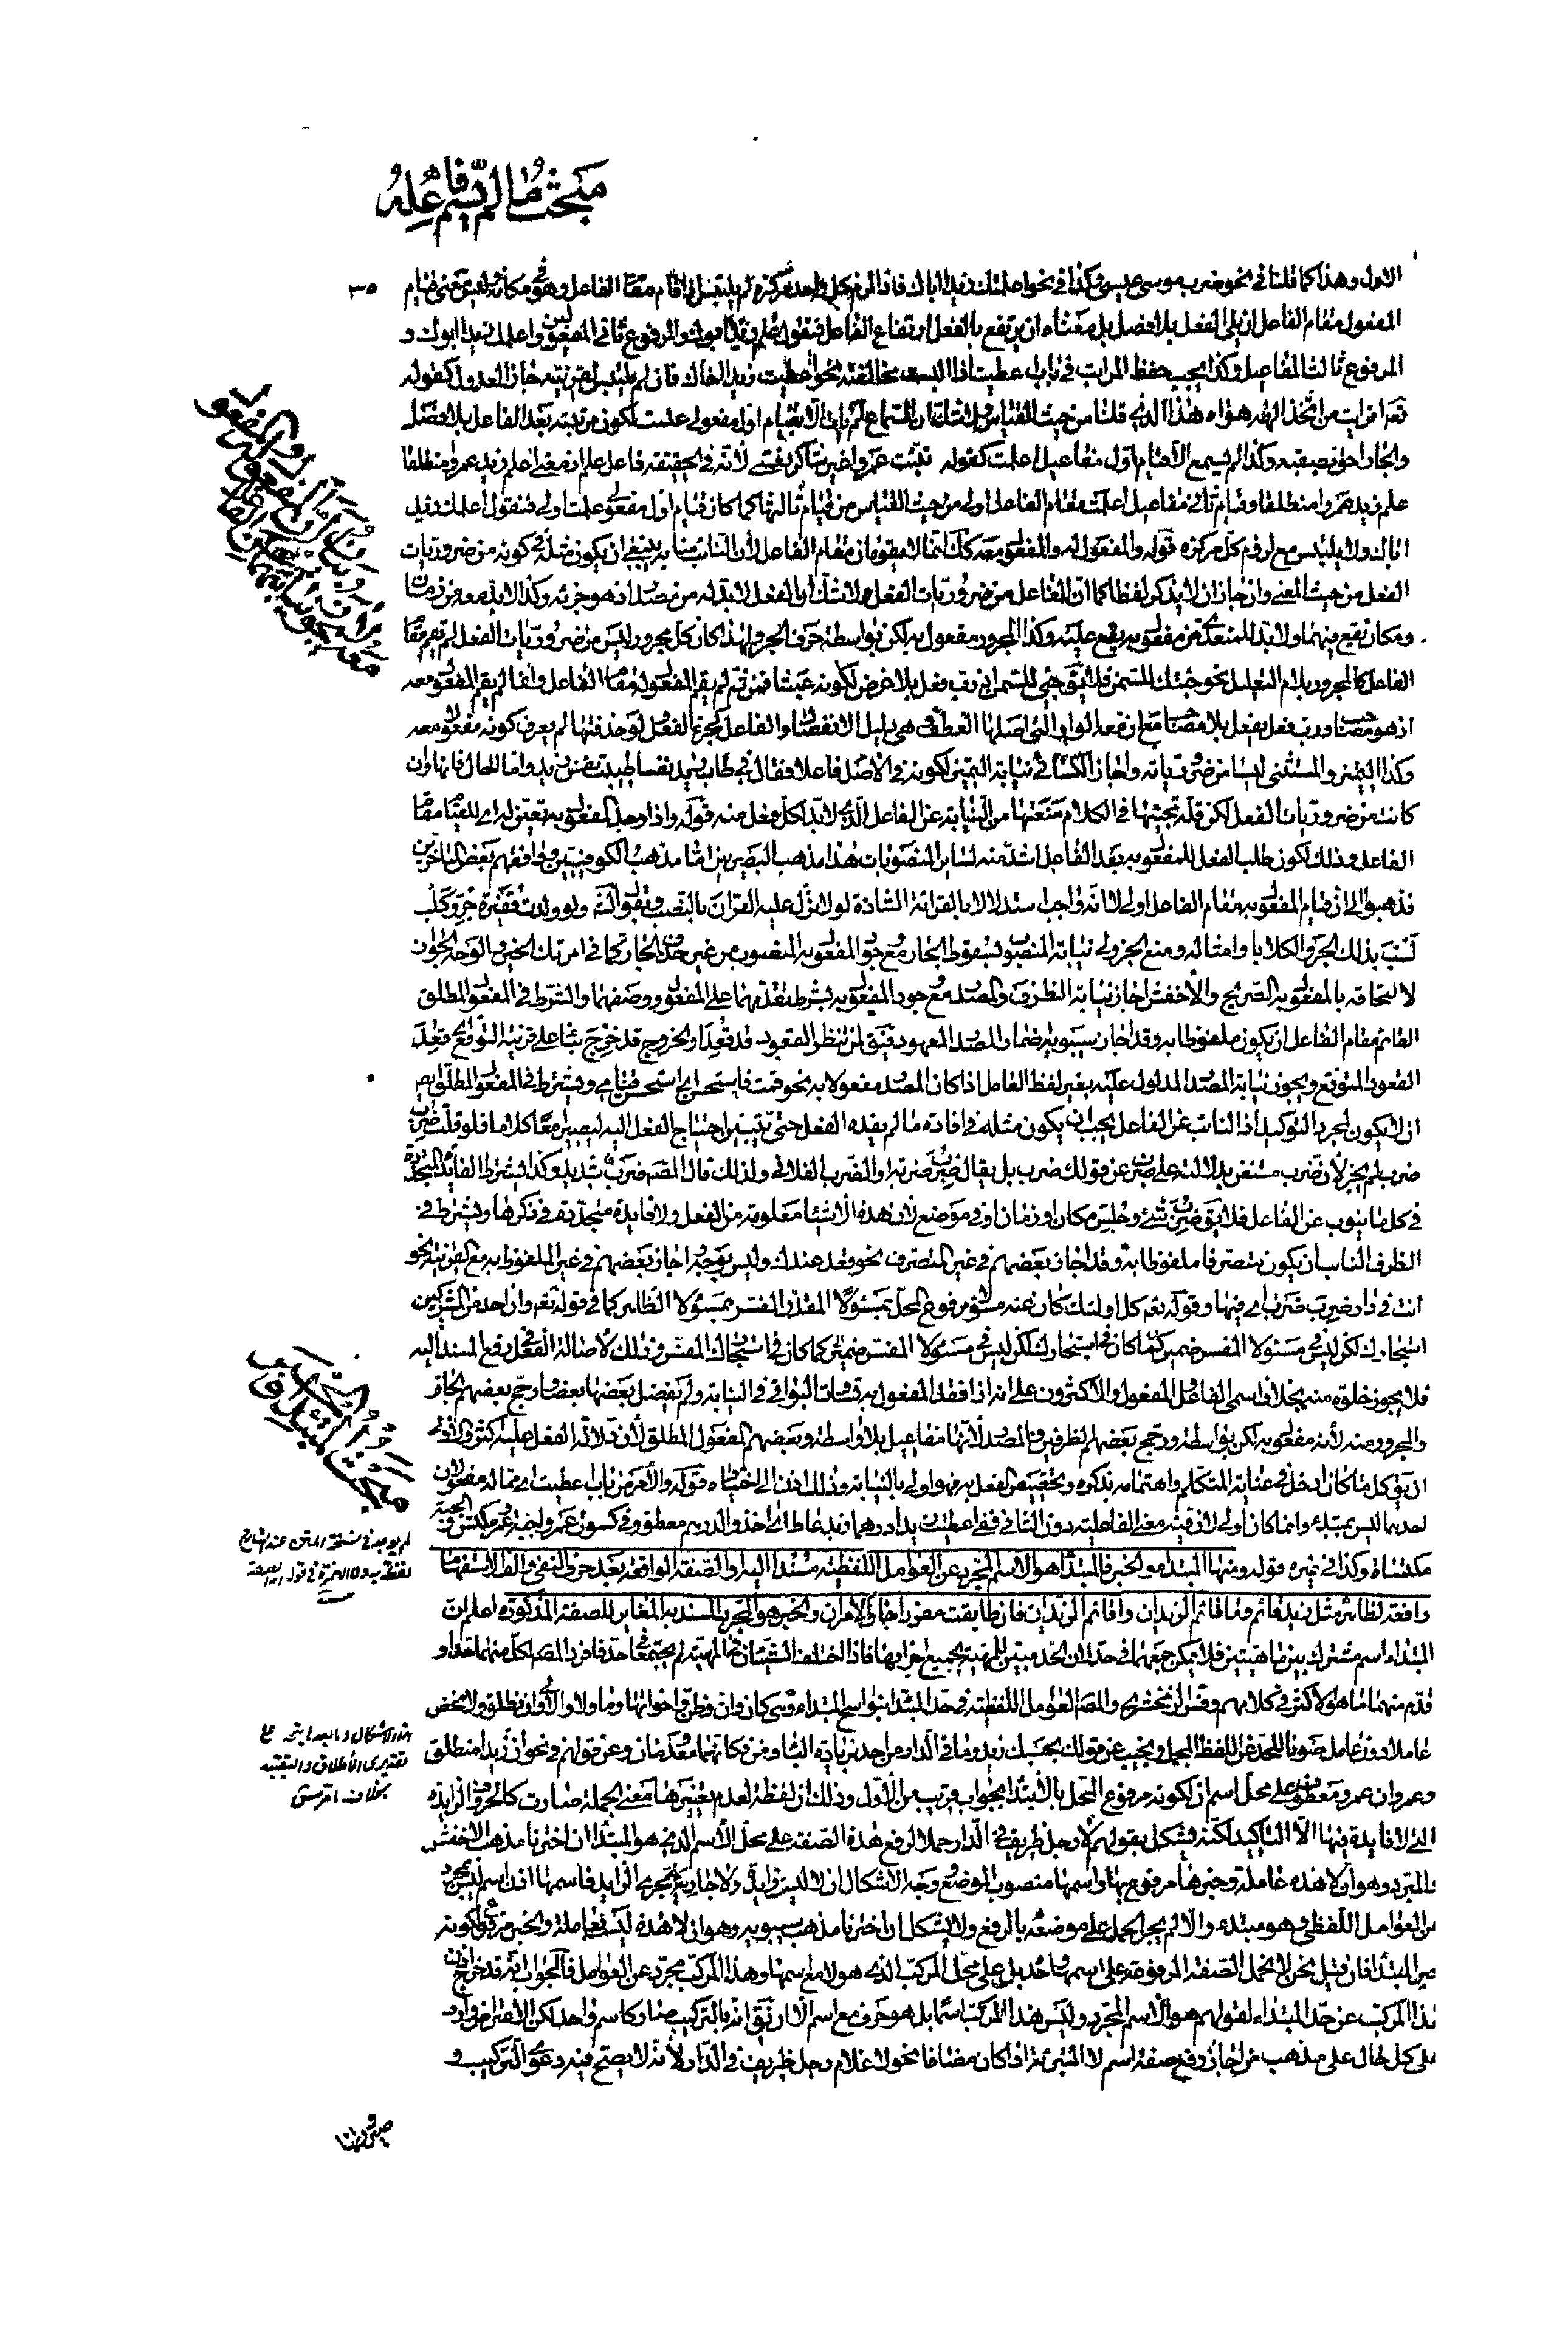 مبحث ما لم يسم فاعله
٣٥
الاول وهذا كما قلنا في نحو ضرب موسى عيسى وكذا في نحو اعلمتك زيدا اباك فاذا لزم كل واحد مركزه لم يلتبس اذا قام مقام الفاعل وهو في مكانه ليس معنى قيام
المفعول مقام الفاعل ان يلى الفعل بلا فصل بل معناه ان يرتفع بالفعل ارتفاع الفاعل فتقول علم زيدا ابوك والمرفوع ثاني المفعولين واعلمك زيدا ابوك و
المرفوع ثالث المفاعيل وكذا يجب حفظ المراتب في باب اعطيت اذا التبس مخالفته نحو اعطيت زيدا اخاك فان لم يلتبس لقرينة جاز العدول كقوله
تعم افرايت من اتخذ الهه هواه هذا الذي قلنا من حيث القياس ولا شك ان السماع لم يات الا بقيام اول مفعولى علمت لكون مرتبته بعد الفاعل بلا فصل
والجار احق بصقبه وكذا لم يسمع الا قيام اول مفاعيل اعلمت كقوله نبئت عمروا غير شاكر نعمتى لانه في الحقيقة فاعل علم اذ معنى اعلم زيد عمروا منطلقا
علم زيد عمروا منطلقا وقيام ثاني مفاعيل اعلمت مقام الفاعل اولى من حيث القياس من قيام ثالثها كما كان قيام اول مفعولى علمت اولى فتقول اعلمك زيد
اباك ولا يلتبس مع لزوم كل مركزه قوله والمفعول له والمفعول معه كذلك انما لا يقومان مقام الفاعل لان النائب منابه ينبغي ان يكون مثله في كونه من ضروريات
الفعل من حيث المعنى وان جاز ان لا يذكر لفظا كما ان الفاعل من ضروريات الفعل ولا شك ان الفعل لا بد له من مصدر اذ هو جزئه وكذا لا بد معه من زمان
ومكان يقع فيهما ولا بد للمتعدى من مفعول به يقع عليه وكذا المجرور مفعول به لكن بواسطة حرف الجر ولهذا كان كل مجرور ليس من ضروريات الفعل لم يقم مقام
الفاعل كالمجرور بلام التعليل نحو جئتك للسمن فلا يقال جيئ للسمن اذ رب فعل بلا غرض لكونه عبثا فمن ثم لم يقم المفعول له مقام الفاعل وانما لم يقم المفعول معه
اذ هو مصاحب ورب فعل يفعل بلا مصاحب مع ان معه الواو التي اصلها العطف وهي دليل الانفصال والفاعل كجزء الفعل ولو حذفتها لم يعرف كونه مفعولا معه
وكذا التمييز والمستثنى ليسا من ضرورياته واجاز الكسائي نيابة التمييز لكونه في الاصل فاعلا فقال في طاب زيد نفسا طيبت نفس زيد واما الحال فانها وان
كانت من ضروريات الفعل لكن قلة مجيئها في الكلام منعتها من النيابة عن الفاعل الذي لا بد لكل فعل منه قوله واذا وجد المفعول به تعين له اى للقيام مقام
الفاعل وذلك لكون طلب الفعل للمفعول به بعد الفاعل اشد منه لسائر المنصوبات هذا مذهب البصريين اما مذهب الكوفيين ووافقهم بعض المتاخرين
فذهبوا الى ان قيام المفعول به مقام الفاعل اولى لا انه واجب استدلالا بالقرائة الشاذة لولا نزل عليه القران بالنصب وبقول الشه ولو ولدت فقيرة جرو كلب
لسب بذلك الجرو الكلابا وامثاله ومنع الجزولى نيابة المنصوب بسقوط الجار مع وجود المفعول به المنصوب من غير حذف الجار كما في امرتك الخير والوجه الجواز
لالتحاقه بالمفعول به الصريح والاخفش اجاز نيابة الظرف والمصدر مع وجود المفعول به بشرط تقدمهما على المفعول ووصفهما والشرط في المفعول المطلق
القائم مقام الفاعل ان يكون ملفوظا به وقد اجاز سيبويه اضمار المصدر المعهود فيقال لمن ينتظر القعود قد قعد او الخروج قد خرج بناء على قرينة التوقع اى قعد
القعود المتوقع ويجوز نيابة المصدر المدلول عليه بغير لفظ العامل اذا كان المصدر مفعولا به نحو قمت فاستحسن اى استحسن قيامى ويشترط في المفعول المطلق ايضا
ان لا يكون لمجرد التوكيد اذ النائب عن الفاعل يجب ان يكون مثله في افادة ما لم يفده الفعل حتى يتبين احتياج الفعل اليه ليصيرا معا كلاما فلو قلت ضرب
ضرب لم يجز لان ضرب مستغن بدلالته على ضرب عن قولك ضرب بل يقال ضرب ضربة او الضرب الفلاني ولذلك قال المصه ضرب شديد وكذا يشترط الفائدة المتجددة
في كل ما ينوب عن الفاعل فلا يقال ضرب شئ وجلس مكان او زمان او في موضع لان هذه الاشياء معلومة من الفعل ولا فايدة متجددة في ذكرها ويشترط في
الظرف النائب ان يكون متصرفا ملفوظا به وقد اجاز بعضهم في غير المتصرف نحو قعد عندك وليس بوجه واجاز بعضهم في غير الملفوظ به مع القرينة نحو
انت في دار ضرب فضرب اى فيها وقوله تعم كل اولئك كان عنه مسئولا مرفوع المحل بمسئولا المقدر المفسر بمسئولا الظاهر كما في قوله تعم وان احد من المشركين
استجارك لكن ليس في مسئولا المفسر ضمير كما كان في استجارك لكن ليس في مسئولا المفسر ضمير كما كان في استجارك المفسر وذلك لاصالة الفعل في رفع المسند اليه
فلا يجوز خلوه منه بخلاف اسمى الفاعل والمفعول والاكثرون على انه اذا فقد المفعول به تساوت البواقي في النيابة ولم يفضل بعضها بعضا ورجح بعضهم الجار
والمجرور منه لانه مفعول به لكن بواسطة ورجح بعضهم الظرفين والمصدر لانها مفاعيل بلا واسطة وبعضهم المفعول المطلق لان دلالة الفعل عليه اكثر والاولى
ان يقال كل ما كان ادخل في عناية المتكلم واهتمامه بذكره وتخصيص الفعل به فهو اولى بالنيابة وذلك اذن الى اختياره قوله والاول من باب اعطيت اى مما له مفعولان
احدهما ليس بمبتدء وانما كان اولى لان فيه معنى الفاعلية دون الثاني ففي اعطيت زيدا درهما زيد عاط اى اخذ والدرهم معطو وفي كسوت عمروا جبة عمرو مكتس والجبة
مكتساة وكذا في غيره قوله ومنها المبتدء والخبر فالمبتدأ هو الاسم المجرد عن العوامل اللفظية مسندا اليه او الصفة الواقعة بعد حرف النفي والف الاستفهام
رافعة لظاهر مثل زيد قائم وما قائم الزيدان واقائم الزيدان فان طابقت مفردا جاز الامران والخبر هو المجرد المسند به المغاير للصفة المذكورة اعلم ان
المبتداء اسم مشترك بين ماهيتين فلا يمكن جمعهما في حد لان الحد مبين للمهية بجميع اجزائها فاذا اختلف الشيئان في الماهية لم يجتمعا في حد فافرد المصه لكل منهما حدا و
قدم منهما ما هو الاكثر في كلامهم وفسر الزمخشرى والمصه العوامل اللفظية في حد المبتدا بنواسخ المبتداء وهى كان وان وظن واخواتها وما ولا والاولى ان نطلق ولا نخص
عاملا دون عامل صونا للحد عن اللفظ المجمل ونجيب عن قولك بحسبك زيد وما في الدار من احد بزيادة الباء ومن فكانهما معدومان وعن قولهم في نحو ان زيدا منطلق
وعمرو ان عمرو معطوف على محل اسم ان لكونه مرفوع المحل بالابتداء بجواب قريب من الاول وذلك ان لفظة ان لعدم تغييرها معنى الجملة صارت كالحروف الزايدة
التي لا فايدة فيها الا التاكيد لكنه يشكل بقولهم لا رجل ظريف في الدار حملا لرفع هذه الصفة على محل الاسم الذي هو المبتدأ ان اخترنا مذهب الاخفش
والمبرد وهو ان لا هذه عاملة وخبرها مرفوع بها واسمها منصوب الموضع وجه الاشكال ان لا ليس زايدا ولا جارية مجرى الزايد فاسمها اذن اسم ليس بمجرد
من العوامل اللفظى وهو مبتدء والا لم يجز الحمل على موضعه بالرفع ولا يشكل ان اخترنا مذهب سيبويه وهو ان لا هذه ليست بعاملة والخبر مرفوع لكونه
خبر المبتدأ فان قيل نحن لا نحمل الصفة المرفوعة على اسمها وحده بل على محل المركب الذي هو لا مع اسمها وهذا المركب مجرد عن العوامل فالجواب انه قد خرج اذن
هذا المركب عن حد المبتداء لقولهم هو الاسم المجرد وليس هذا المركب اسما بل هو حرف مع اسم الا ان يقال انه بالتركيب صار كاسم واحد لكن الاعتراض وارد
على كل حال على مذهب من اجاز رفع صفة اسم لا التبرئة اذا كان مضافا نحو لا غلام رجل ظريف في الدار لانه لا يصح فيه دعوى التركيب و
مبحث المبتدأ والخبر
لم يوجد في نسخة المتن عند الشارح